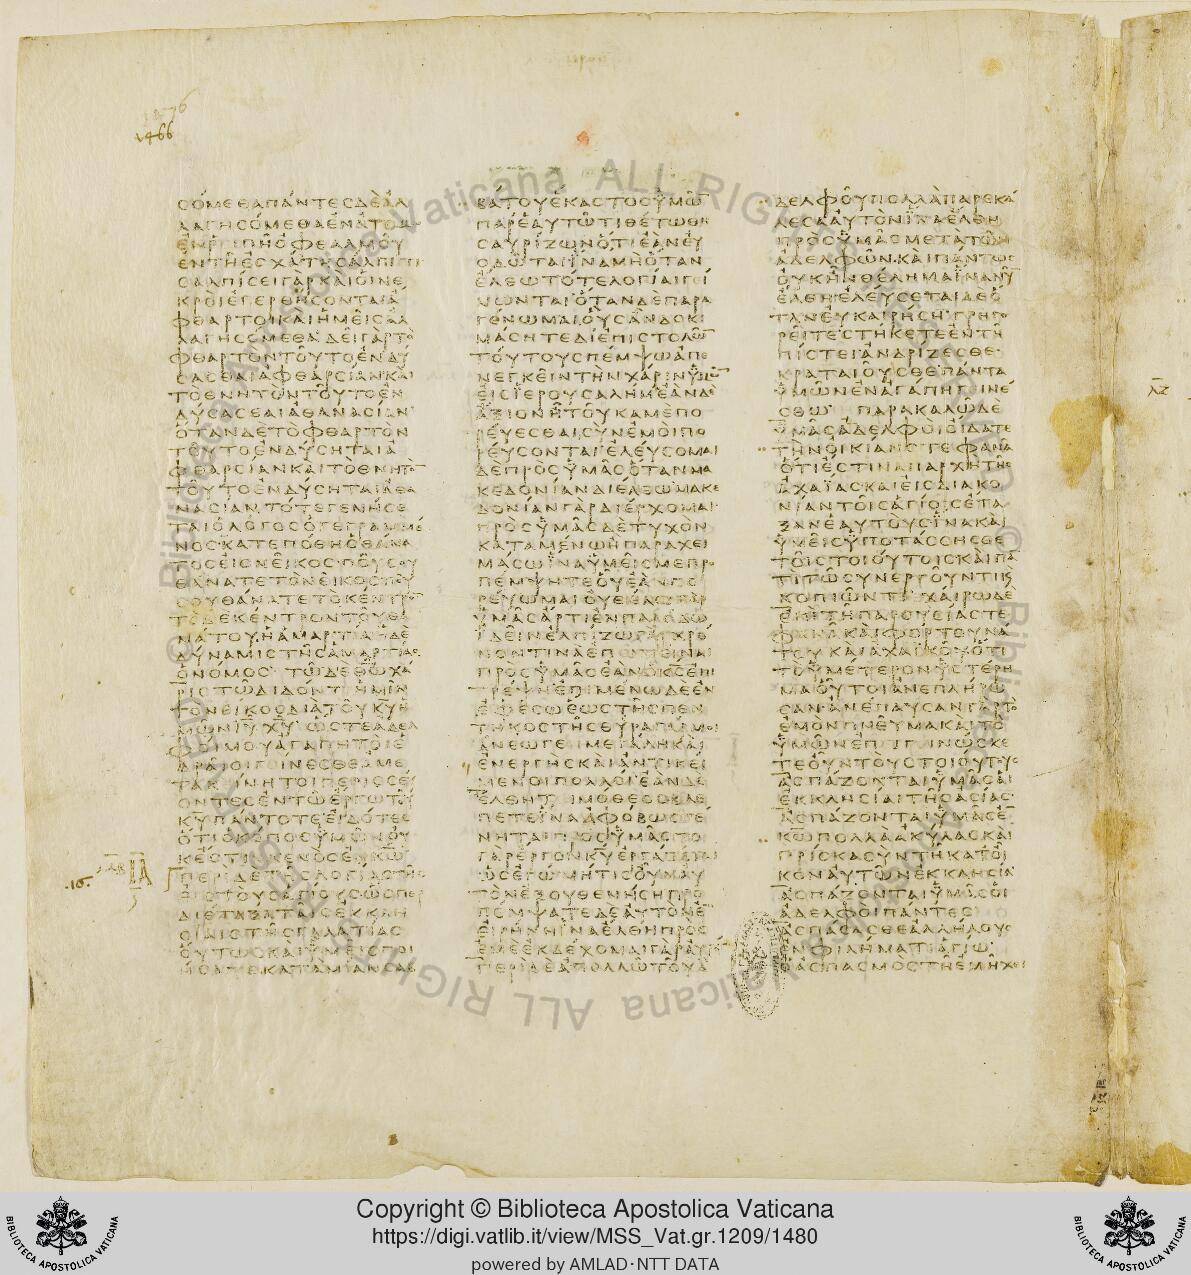 1466
ϹΟΜΕΘΑΠΑΝΤΕϹΔΕΑΛ
ΛΑΓΗϹΟΜΕΘΑΕΝΑΤΟΜ
ΕΝΡΙΠΗΟΦΘΑΛΜΟΥ
ΕΝΤΗΕϹΧΑΤΗϹΑΛΠΙΓΓΙ
ϹΑΛΠΙϹΕΙΓΑΡΚΑΙΟΙΝΕ
ΚΡΟΙΕΓΕΡΘΗϹΟΝΤΑΙΑ
ΦΘΑΡΤΟΙΚΑΙΗΜΕΙϹΑΛ
ΛΑΓΗϹΟΜΕΘΑΔΕΙΓΑΡΤΟ
ΦΘΑΡΤΟΝΤΟΥΤΟΕΝΔΥ
ϹΑϹΘΑΙΑΦΘΑΡϹΙΑΝΚΑΙ
ΤΟΘΝΗΤΟΝΤΟΥΤΟΕΝ
ΔΥϹΑϹΘΑΙΑΘΑΝΑϹΙΑΝ
ΟΤΑΝΔΕΤΟΦΘΑΡΤΟΝ
ΤΟΥΤΟΕΝΔΥϹΗΤΑΙΑ
ΦΘΑΡϹΙΑΝΚΑΙΤΟΘΝΗΤΟ
ΤΟΥΤΟΕΝΔΥϹΗΤΑΙΑΘΑ
ΝΑϹΙΑΝΤΟΤΕΓΕΝΗϹΕ
ΤΑΙΟΛΟΓΟϹΟΓΕΓΡΑΜΜΕ
ΝΟϹΚΑΤΕΠΟΘΗΟΘΑΝΑ
ΤΟϹΕΙϹΝΕΙΚΟϹΠΟΥϹΟΥ
ΘΑΝΑΤΕΤΟΝΕΙΚΟϹΠΟΥ
ϹΟΥΘΑΝΑΤΕΤΟΚΕΝΤΡΟ
ΤΟΔΕΚΕΝΤΡΟΝΤΟΥΘΑ
ΝΑΤΟΥΗΑΜΑΡΤΙΑΗΔΕ
ΔΥΝΑΜΙϹΤΗϹΑΜΑΡΤΙΑϹ
ΟΝΟΜΟϹ ΤΩΔΕΘΩΧΑ
ΡΙϹΤΩΔΙΔΟΝΤΙΗΜΙΝ
ΤΟΝΕΙΚΟϹΔΙΑΤΟΥΚΥΗ
ΜΩΝΙΥΧΥ ΩϹΤΕΑΔΕΛ
ΦΟΙΜΟΥΑΓΑΠΗΤΟΙΕ
ΔΡΑΙΟΙΓΙΝΕϹΘΕΑΜΕ
ΤΑΚΙΝΗΤΟΙΠΕΡΙϹϹΕΥ
ΟΝΤΕϹΕΝΤΩΕΡΓΩΤΟΥ
ΚΥΠΑΝΤΟΤΕΕΙΔΟΤΕϹ
ΟΤΙΟΚΟΠΟϹΥΜΩΝΟΥ
ΚΕϹΤΙΝΚΕΝΟϹΕΝΚΩ
ΠΕΡΙΔΕΤΗϹΛΟΓΙΑϹΤΗϹ
ΕΙϹΤΟΥϹΑΓΙΟΥϹΩϹΠΕΡ
ΔΙΕΤΑΞΑΤΑΙϹΕΚΚΛΗ
ϹΙΑΙϹΤΗϹΓΑΛΑΤΙΑϹ
ΟΥΤΩϹΚΑΙΥΜΕΙϹΠΟΙ
ΗϹΑΤΕΚΑΤΑΜΙΑΝϹΑΒ
ΙΑ
ΒΑΤΟΥΕΚΑϹΤΟϹΥΜΩ
ΠΑΡΕΑΥΤΩΤΙΘΕΤΩΘΗ
ϹΑΥΡΙΖΩΝΟΤΙΕΑΝΕΥ
ΟΔΩΤΑΙΙΝΑΜΗΟΤΑΝ
ΕΛΘΩΤΟΤΕΛΟΓΙΑΙΓΕΙ
ΝΩΝΤΑΙΟΤΑΝΔΕΠΑΡΑ
ΓΕΝΩΜΑΙΟΥϹΑΝΔΟΚΙ
ΜΑϹΗΤΕΔΙΕΠΙϹΤΟΛΩ
ΤΟΥΤΟΥϹΠΕΜΨΩΑΠΕ
ΝΕΓΚΕΙΝΤΗΝΧΑΡΙΝΥΜΩ
ΕΙϹΙΕΡΟΥϹΑΛΗΜΕΑΝΔΕ
ΑΞΙΟΝΗΤΟΥΚΑΜΕΠΟ
ΡΕΥΕϹΘΑΙϹΥΝΕΜΟΙΠΟ
ΡΕΥϹΟΝΤΑΙΕΛΕΥϹΟΜΑΙ
ΔΕΠΡΟϹΥΜΑϹΟΤΑΝΜΑ
ΚΕΔΟΝΙΑΝΔΙΕΛΘΩΜΑΚΕ
ΔΟΝΙΑΝΓΑΡΔΙΕΡΧΟΜΑΙ
ΠΡΟϹΥΜΑϹΔΕΤΥΧΟΝ
ΚΑΤΑΜΕΝΩΗΠΑΡΑΧΕΙ
ΜΑϹΩΙΝΑΥΜΕΙϹΜΕΠΡΟ
ΠΕΜΨΗΤΕΟΥΕΑΝΠΟ
ΡΕΥΩΜΑΙΟΥΘΕΛΩΓΑΡ
ΥΜΑϹΑΡΤΙΕΝΠΑΡΟΔΩ
ΙΔΕΙΝΕΛΠΙΖΩΓΑΡΧΡΟ
ΝΟΝΤΙΝΑΕΠΙΜΕΙΝΑΙ
ΠΡΟϹΥΜΑϹΕΑΝΟΚϹΕΠΙ
ΤΡΕΨΗΕΠΙΜΕΝΩΔΕΕΝ
ΕΦΕϹΩΕΩϹΤΗϹΠΕΝ
ΤΗΚΟϹΤΗϹΘΥΡΑΓΑΡΜΟΙ
ΑΝΕΩΓΕΝΜΕΓΑΛΗΚΑΙ
ΕΝΕΡΓΗϹΚΑΙΑΝΤΙΚΕΙ
ΜΕΝΟΙΠΟΛΛΟΙΕΑΝΔΕ
ΕΛΘΗΤΙΜΟΘΕΟϹΒΛΕ
ΠΕΤΕΙΝΑΑΦΟΒΩϹΓΕ
ΝΗΤΑΙΠΡΟϹΥΜΑϹΤΟ
ΓΑΡΕΡΓΟΝΚΥΕΡΓΑΖΕΤΑΙ
ΩϹΕΓΩΜΗΤΙϹΟΥΝΑΥ
ΤΟΝΕΞΟΥΘΕΝΗϹΗΠΡΟ
ΠΕΜΨΑΤΕΔΕΑΥΤΟΝΕ
ΕΙΡΗΝΗΙΝΑΕΛΘΗΠΡΟϹ
ΕΜΕΕΚΔΕΧΟΜΑΙΓΑΡΑΥΤΟ
ΠΕΡΙΔΕΑΠΟΛΛΩΤΟΥΑ
ΔΕΛΦΟΥΠΟΛΛΑΠΑΡΕΚΑ
ΛΕϹΑΑΥΤΟΝΙΝΑΕΛΘΗ
ΠΡΟϹΥΜΑϹΜΕΤΑΤΩΝ
ΑΔΕΛΦΩΝΚΑΙΠΑΝΤΩϹ
ΟΥΚΗΝΘΕΛΗΜΑΙΝΑΝΥ
ΕΛΘΗΕΛΕΥϹΕΤΑΙΔΕΟ
ΤΑΝΕΥΚΑΙΡΗϹΗΓΡΗΓΟ
ΡΕΙΤΕϹΤΗΚΕΤΕΕΝΤΗ
ΠΙϹΤΕΙΑΝΔΡΙΖΕϹΘΕ
ΚΡΑΤΑΙΟΥϹΘΕΠΑΝΤΑ
ΥΜΩΝΕΝΑΓΑΠΗΓΙΝΕ
ϹΘΩ ΠΑΡΑΚΑΛΩΔΕ
ΥΜΑϹΑΔΕΛΦΟΙΟΙΔΑΤΕ
ΤΗΝΟΙΚΙΑΝϹΤΕΦΑΝΑ
ΟΤΙΕϹΤΙΝΑΠΑΡΧΗΤΗϹ
ΑΧΑΙΑϹΚΑΙΕΙϹΔΙΑΚΟ
ΝΙΑΝΤΟΙϹΑΓΙΟΙϹΕΤΑ
ΞΑΝΕΑΥΤΟΥϹΙΝΑΚΑΙ
ΥΜΕΙϹΥΠΟΤΑϹϹΗϹΘΕ
ΤΟΙϹΤΟΙΟΥΤΟΙϹΚΑΙΠΑ
ΤΙΤΩϹΥΝΕΡΓΟΥΝΤΙΚ
ΚΟΠΙΩΝΤΙ ΧΑΙΡΩΔΕ
ΕΠΙΤΗΠΑΡΟΥϹΙΑϹΤΕ
ΦΑΝΑΚΑΙΦΟΡΤΟΥΝΑ
ΤΟΥΚΑΙΑΧΑΙΚΟΥΟΤΙ
ΤΟΥΜΕΤΕΡΟΝΥϹΤΕΡΗ
ΜΑΟΥΤΟΙΑΝΕΠΛΗΡΩ
ϹΑΝΑΝΕΠΑΥϹΑΝΓΑΡΤΟ
ΕΜΟΝΠΝΕΥΜΑΚΑΙΤΟ
ΥΜΩΝΕΠΙΓΙΝΩϹΚΕ
ΤΕΟΥΝΤΟΥϹΤΟΙΟΥΤΟΥϹ
ΑϹΠΑΖΟΝΤΑΙΥΜΑϹΑΙ
ΕΚΚΛΗϹΙΑΙΤΗϹΑϹΙΑϹ
ΑϹΠΑΖΟΝΤΑΙΥΜΑϹΕ
ΚΩΠΟΛΛΑΑΚΥΛΑϹΚΑΙ
ΠΡΙϹΚΑϹΥΝΤΗΚΑΤΟΙ
ΚΟΝΑΥΤΩΝΕΚΚΛΗϹΙΑ
ΑϹΠΑΖΟΝΤΑΙΥΜΑϹΟΙ
ΑΔΕΛΦΟΙΠΑΝΤΕϹ
ΑϹΠΑϹΑϹΘΕΑΛΛΗΛΟΥϹ
ΕΝΦΙΛΗΜΑΤΙΑΓΙΩ
ΟΑϹΠΑϹΜΟϹΤΗΕΜΗΧΕΙ
© Biblioteca Apostolica Vaticana ALL RIGHTS
Copyright © Biblioteca Apostolica Vaticana
https://digi.vatlib.it/view/MSS_Vat.gr.1209/1480
powered by AMLAD·NTT DATA
BIBLIOTECA APOSTOLICA VATICANA
BIBLIOTECA APOSTOLICA VATICANA